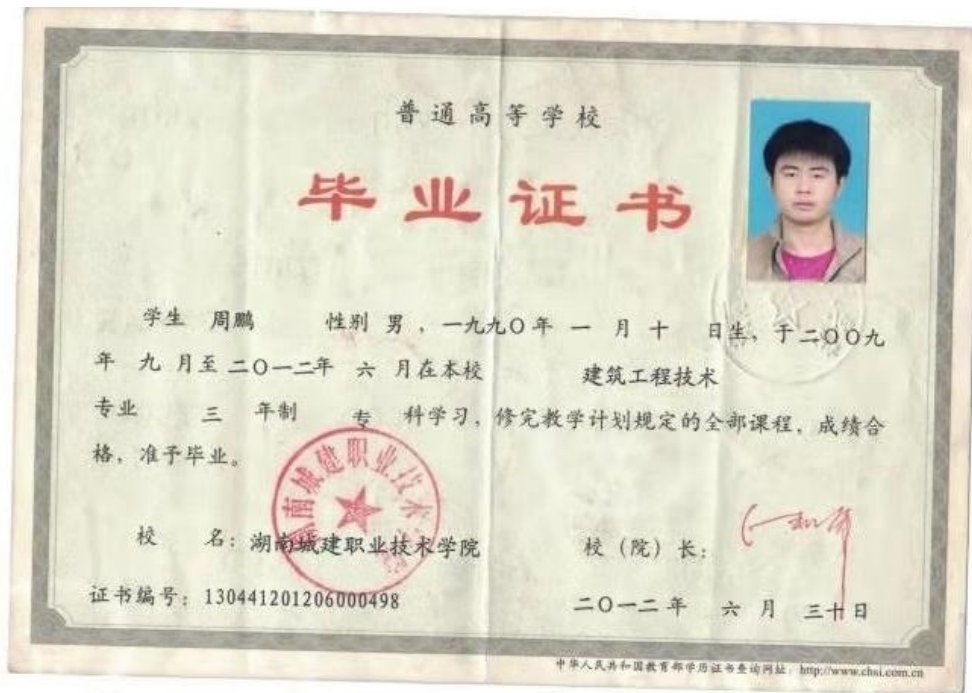 普通高等学校
毕业证书
学生 周鹏 性别 男，一九九〇年 一 月 十 日生，于二〇〇九
年 九 月至二〇一二年 六 月在本校 建筑工程技术
专业 三 年制 专 科学习，修完教学计划规定的全部课程，成绩合
格，准予毕业。
湖南城建职业技术学院
校 名：湖南城建职业技术学院 校（院）长：
证书编号：130441201206000498 二〇一二年 六 月 三十日
中华人民共和国教育部学历证书查询网址：http://www.chsi.com.cn